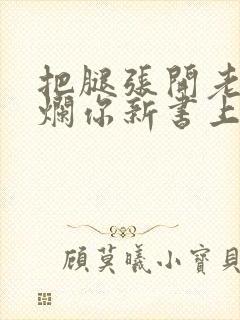 把腿張開老
爛你新書上
顧莫曦小寶貝